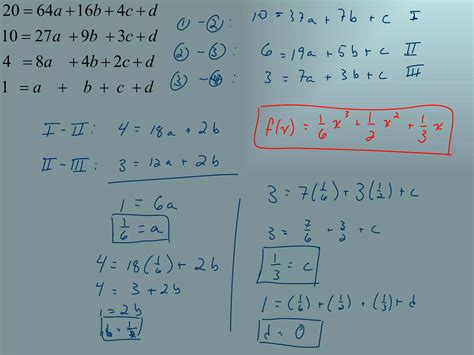 20 = 64a + 16b + 4c + d
10 = 27a + 9b + 3c + d
4 = 8a + 4b + 2c + d
1 = a + b + c + d
① - ②: 10 = 37a + 7b + c I
② - ③: 6 = 19a + 5b + c II
③ - ④: 3 = 7a + 3b + c III
f(x) = 1/6 x³ + 1/2 x² + 1/3 x
I - II: 4 = 18a + 2b
II - III: 3 = 12a + 2b
1 = 6a
1/6 = a
4 = 18(1/6) + 2b
4 = 3 + 2b
1 = 2b
b = 1/2
3 = 7(1/6) + 3(1/2) + c
3 = 7/6 + 3/2 + c
1/3 = c
1 = (1/6) + (1/2) + (1/3) + d
d = 0